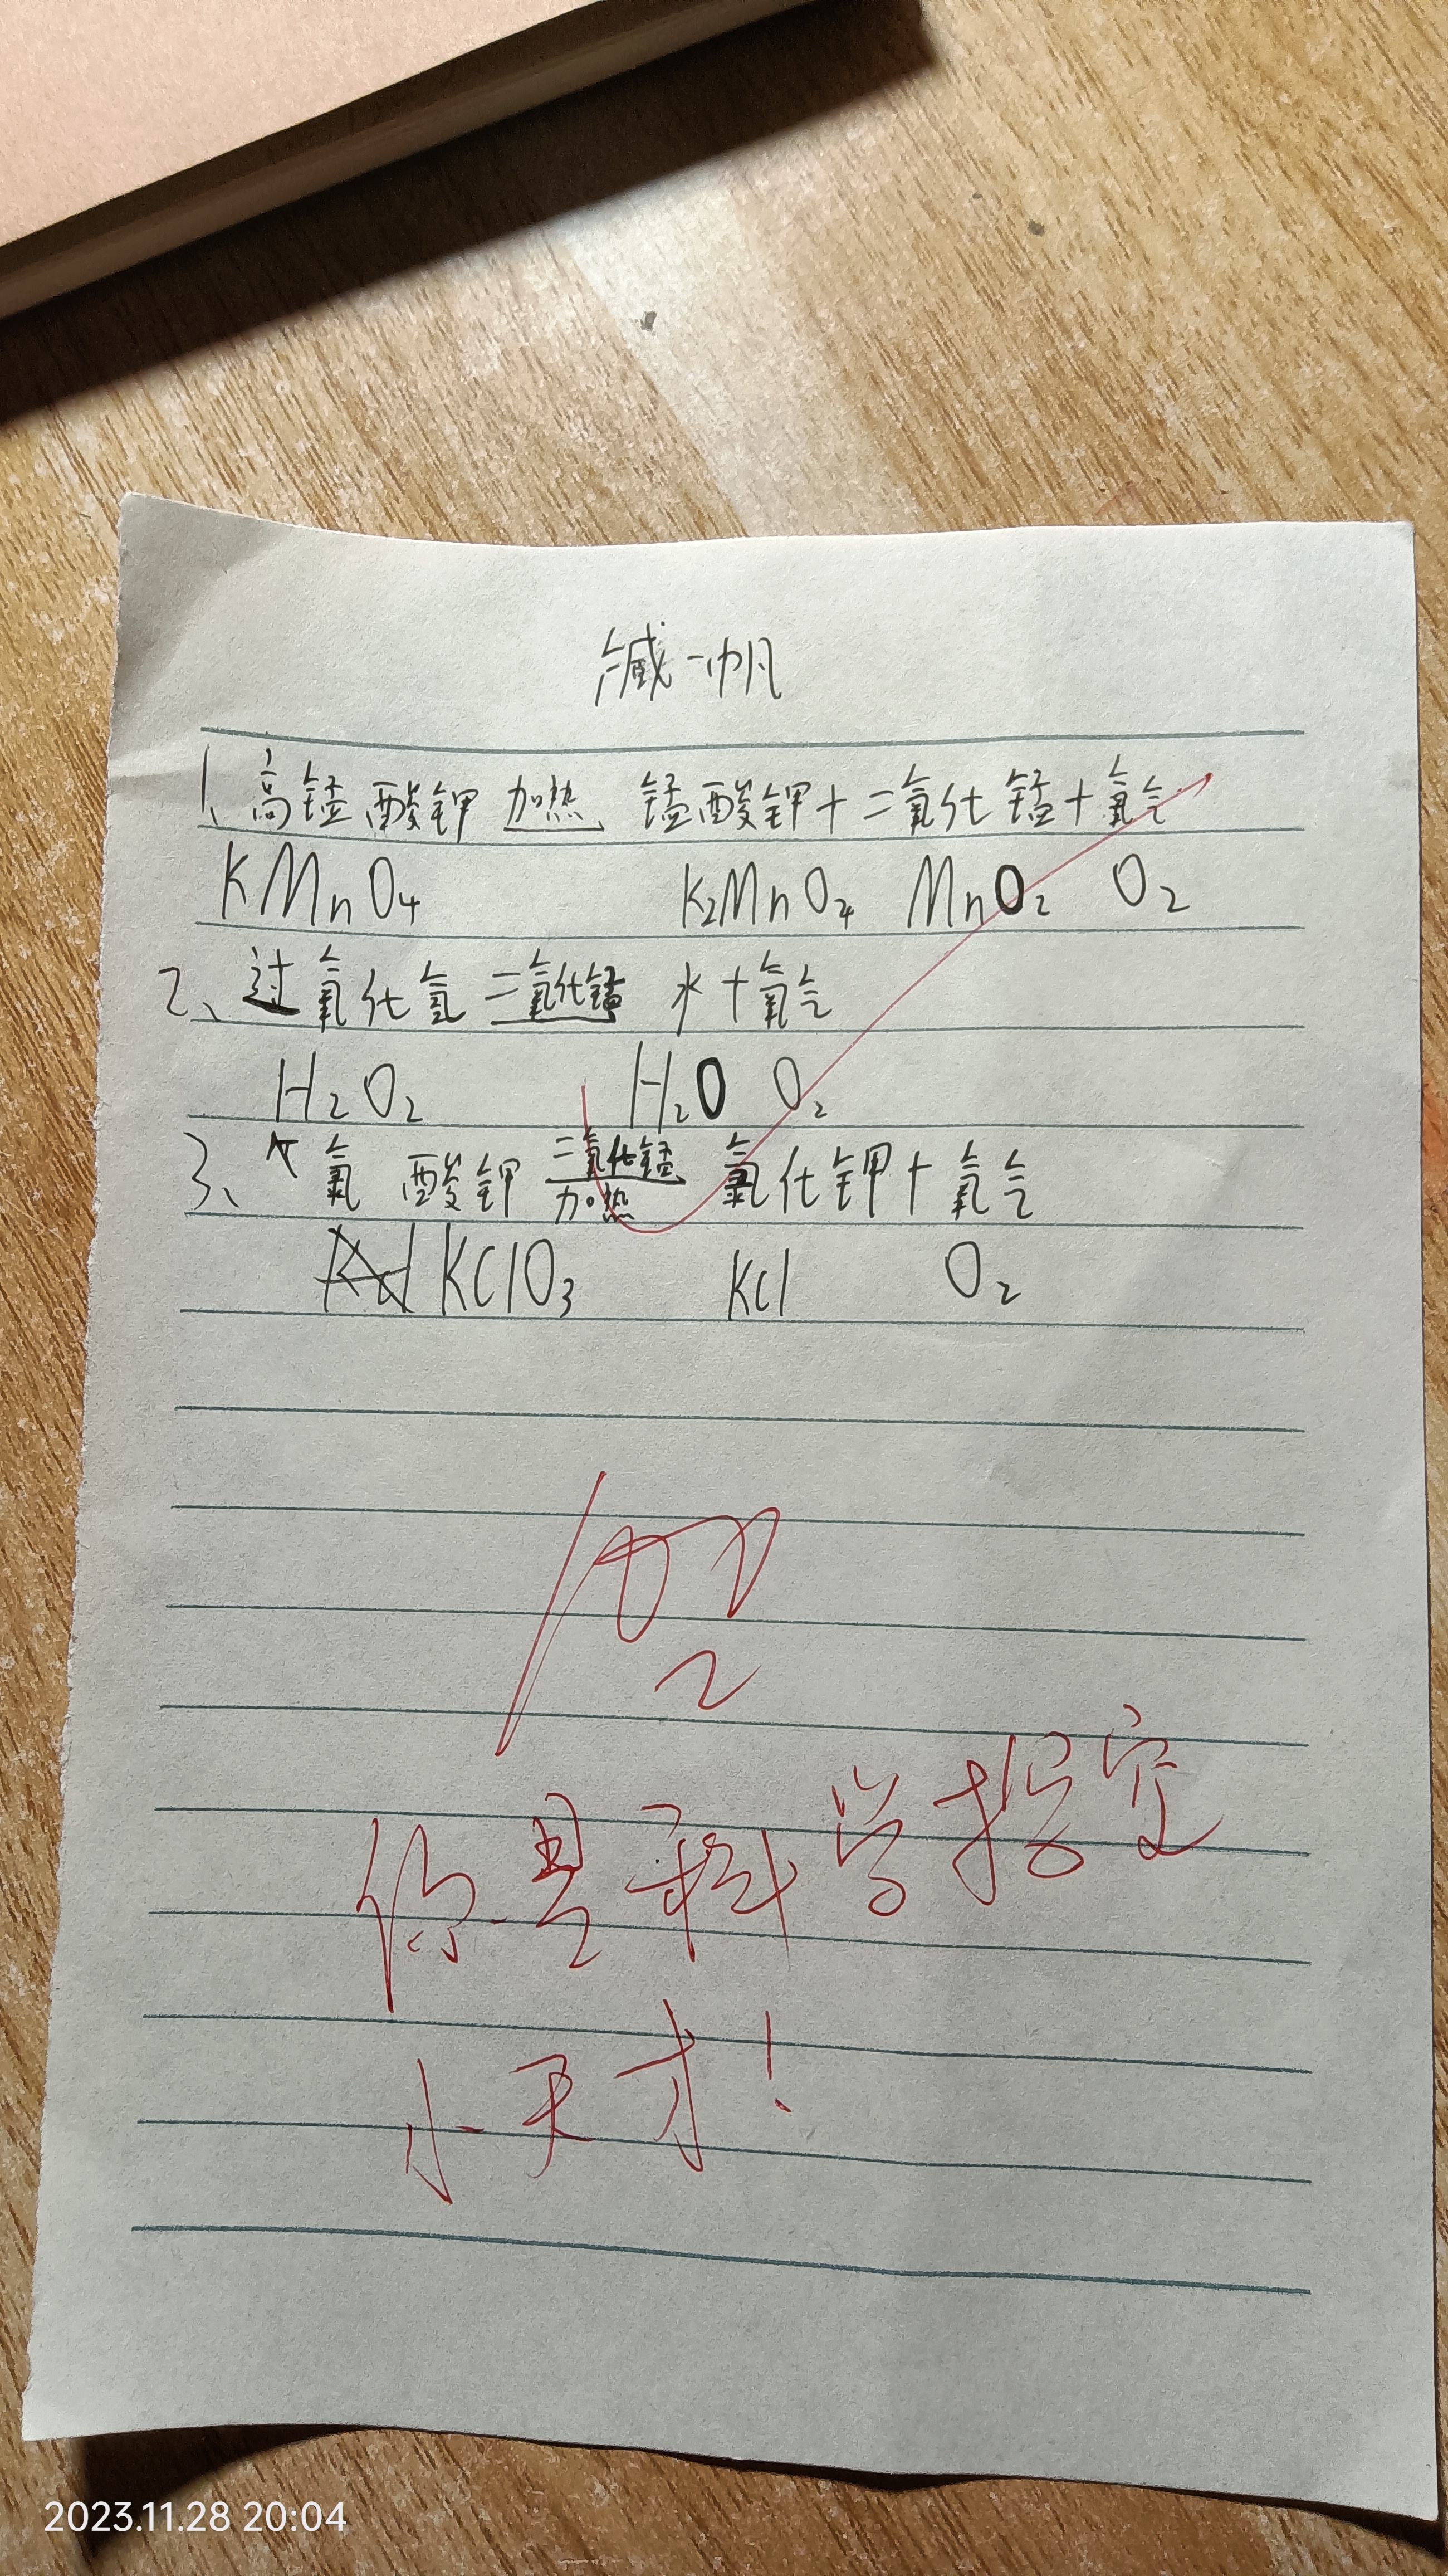 缄一帆
1、高锰酸钾 加热 锰酸钾+二氧化锰+氧气
KMnO4 K2MnO4 MnO2 O2
2、过氧化氢 二氧化锰 水+氧气
H2O2 H2O O2
3、氯酸钾 二氧化锰 加热 氯化钾+氧气
KClO3 KCl O2
100
2
你是科学指定
小天才!
2023.11.28 20:04